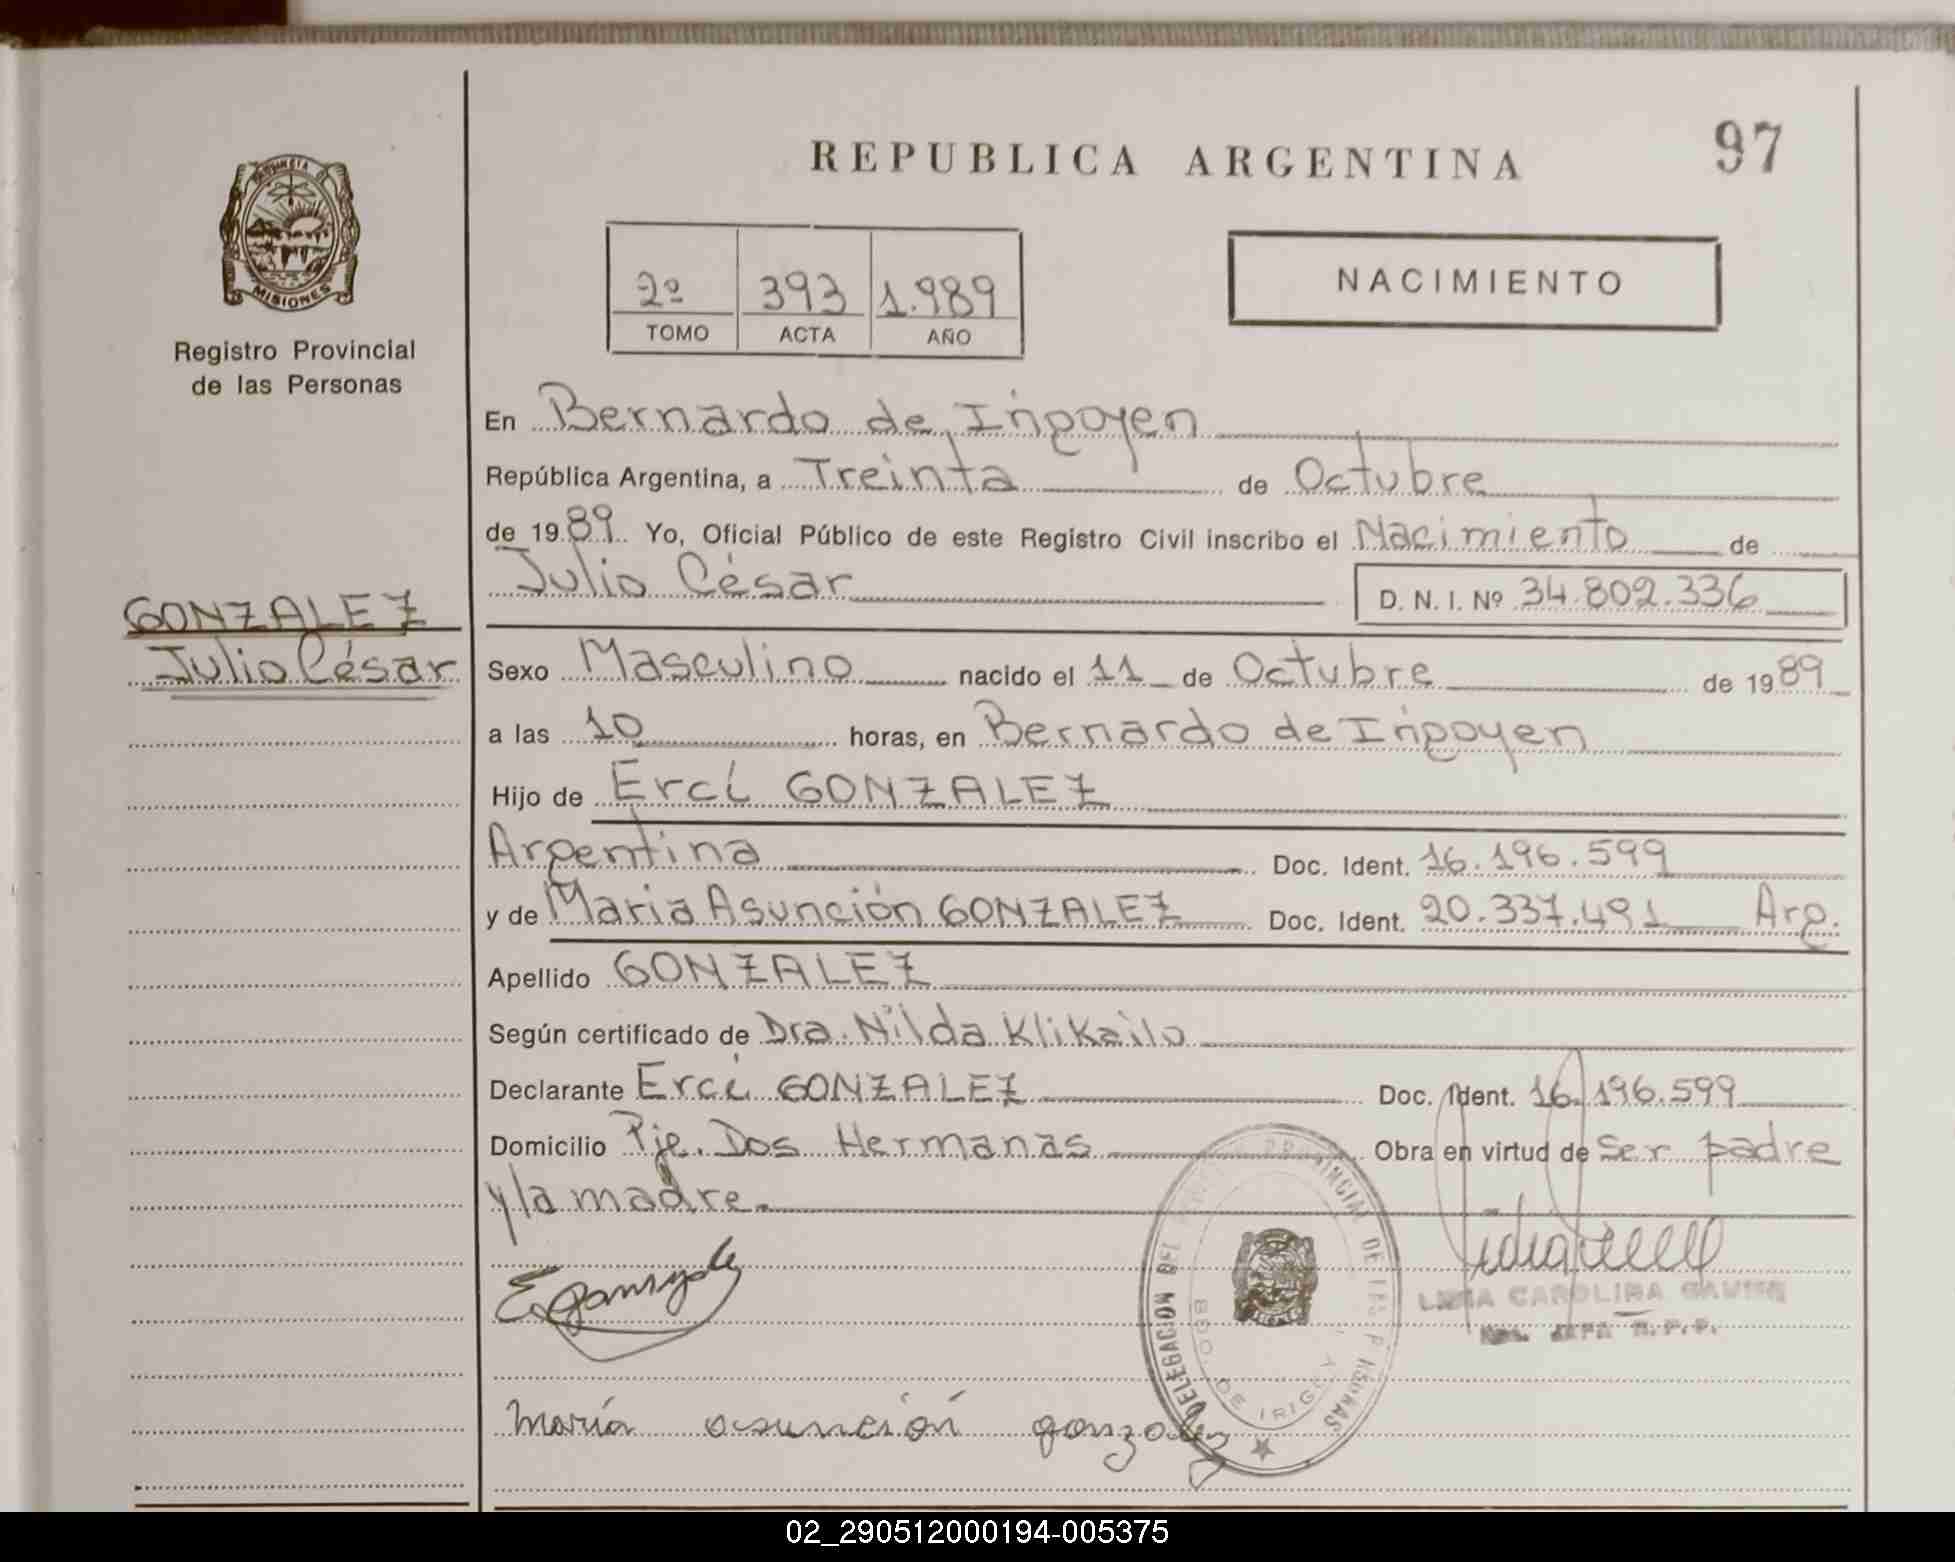 REPUBLICA ARGENTINA
97
PROVINCIA D
MISIONES
Registro Provincial
de las Personas
2º 393 1.989
TOMO ACTA AÑO
NACIMIENTO
En Bernardo de Irigoyen
República Argentina, a Treinta de Octubre
de 1989 Yo, Oficial Público de este Registro Civil inscribo el Nacimiento de
Julio César D. N. I. Nº 34.802.336
GONZALEZ
Julio César
Sexo Masculino nacido el 11 de Octubre de 1989
a las 10 horas, en Bernardo de Irigoyen
Hijo de Erci GONZALEZ
Argentina Doc. Ident. 16.196.599
y de Maria Asunción GONZALEZ Doc. Ident. 20.337.491 Arg.
Apellido GONZALEZ
Según certificado de Dra. Nilda Klikailo
Declarante Erci GONZALEZ Doc. Ident. 16.196.599
Domicilio Pje. Dos Hermanas Obra en virtud de Ser padre
y la madre.
E. Gonzalez
DELEGACION DEL PROVINCIAL DE LAS PERSONAS
BDO. DE IRIGOY
CAROLINA
R.P.P.
María asunción gonzalez
02_290512000194-005375